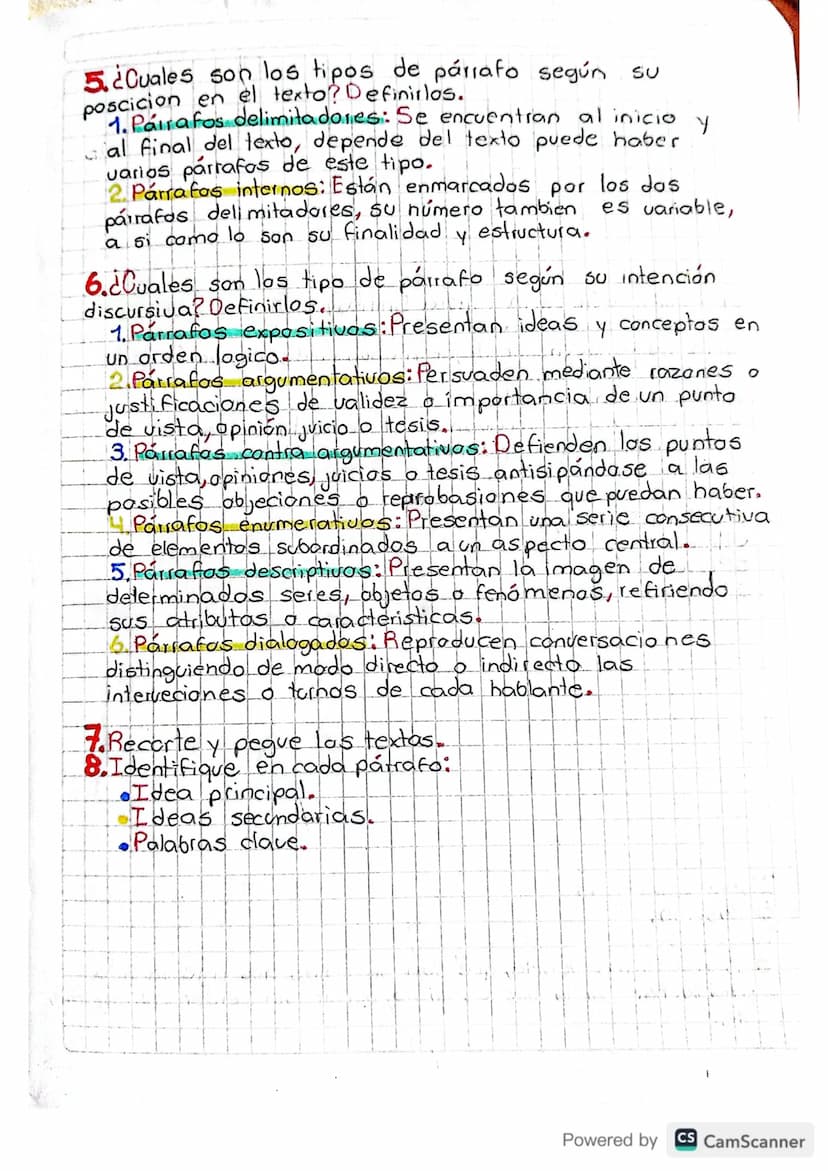 5. ¿Cuales son los tipos de párrafo según su
poscicion en el texto? Definirlos.
1. Párrafos delimitadores: Se encuentran al inicio y
al final del texto, depende del texto puede haber
varios párrafos de este tipo.
2. Párrafos internos: Están enmarcados por los dos
párrafos delimitadores, su número tambien es variable,
a si como lo son su finalidad y estructura.
6. ¿Cuales son los tipo de párrafo según su intención
discursiva? Definirlos.
1. Párrafos expositivos: Presentan ideas y conceptos en
un orden logico.
2. Párrafos argumentativos: Persuaden mediante razones o
justificaciones de validez o importancia de un punto
de vista, opinión juicio o tesis.
3. Párrafos contra argumentativos: Defienden los puntos
de vista, opiniones, juicios o tesis antisipándose a las
posibles objeciones o reprobasiones que puedan haber.
4. Párrafos enumerativos: Presentan una serie consecutiva
de elementos subordinados a un aspecto central.
5. Párrafos descriptivos: Presentan la imagen de
determinados seres, objetos o fenómenos, refiriendo
sus atributos o caracteristicas.
6. Párrafos dialogados: Reproducen conversaciones
distinguiendo de modo directo o indirecto las
interveciones o turnos de cada hablante.
7. Recorte y pegue los textos.
8. Identifique en cada párrafo:
• Idea principal.
• Ideas secundarias.
• Palabras clave.
Powered by CS CamScanner